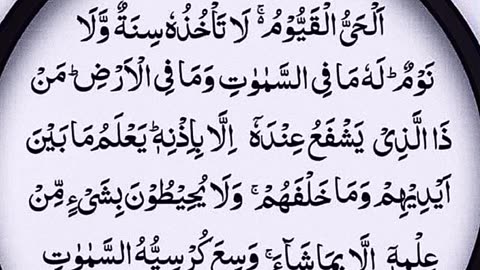 اَلْحَیُّ الْقَیُّوْمُ ۚ۬ لَا تَاْخُذُهٗ سِنَةٌ وَّلَا
نَوْمٌ ؕ لَهٗ مَا فِی السَّمٰوٰتِ وَمَا فِی الْاَرْضِ ؕ مَنْ
ذَا الَّذِیْ یَشْفَعُ عِنْدَهٗۤ اِلَّا بِاِذْنِهٖ ؕ یَعْلَمُ مَا بَیْنَ
اَیْدِیْهِمْ وَمَا خَلْفَهُمْ ۚ وَلَا یُحِیْطُوْنَ بِشَیْءٍ مِّنْ
عِلْمِهٖۤ اِلَّا بِمَا شَآءَ ۚ وَسِعَ كُرْسِیُّهُ السَّمٰوٰتِ